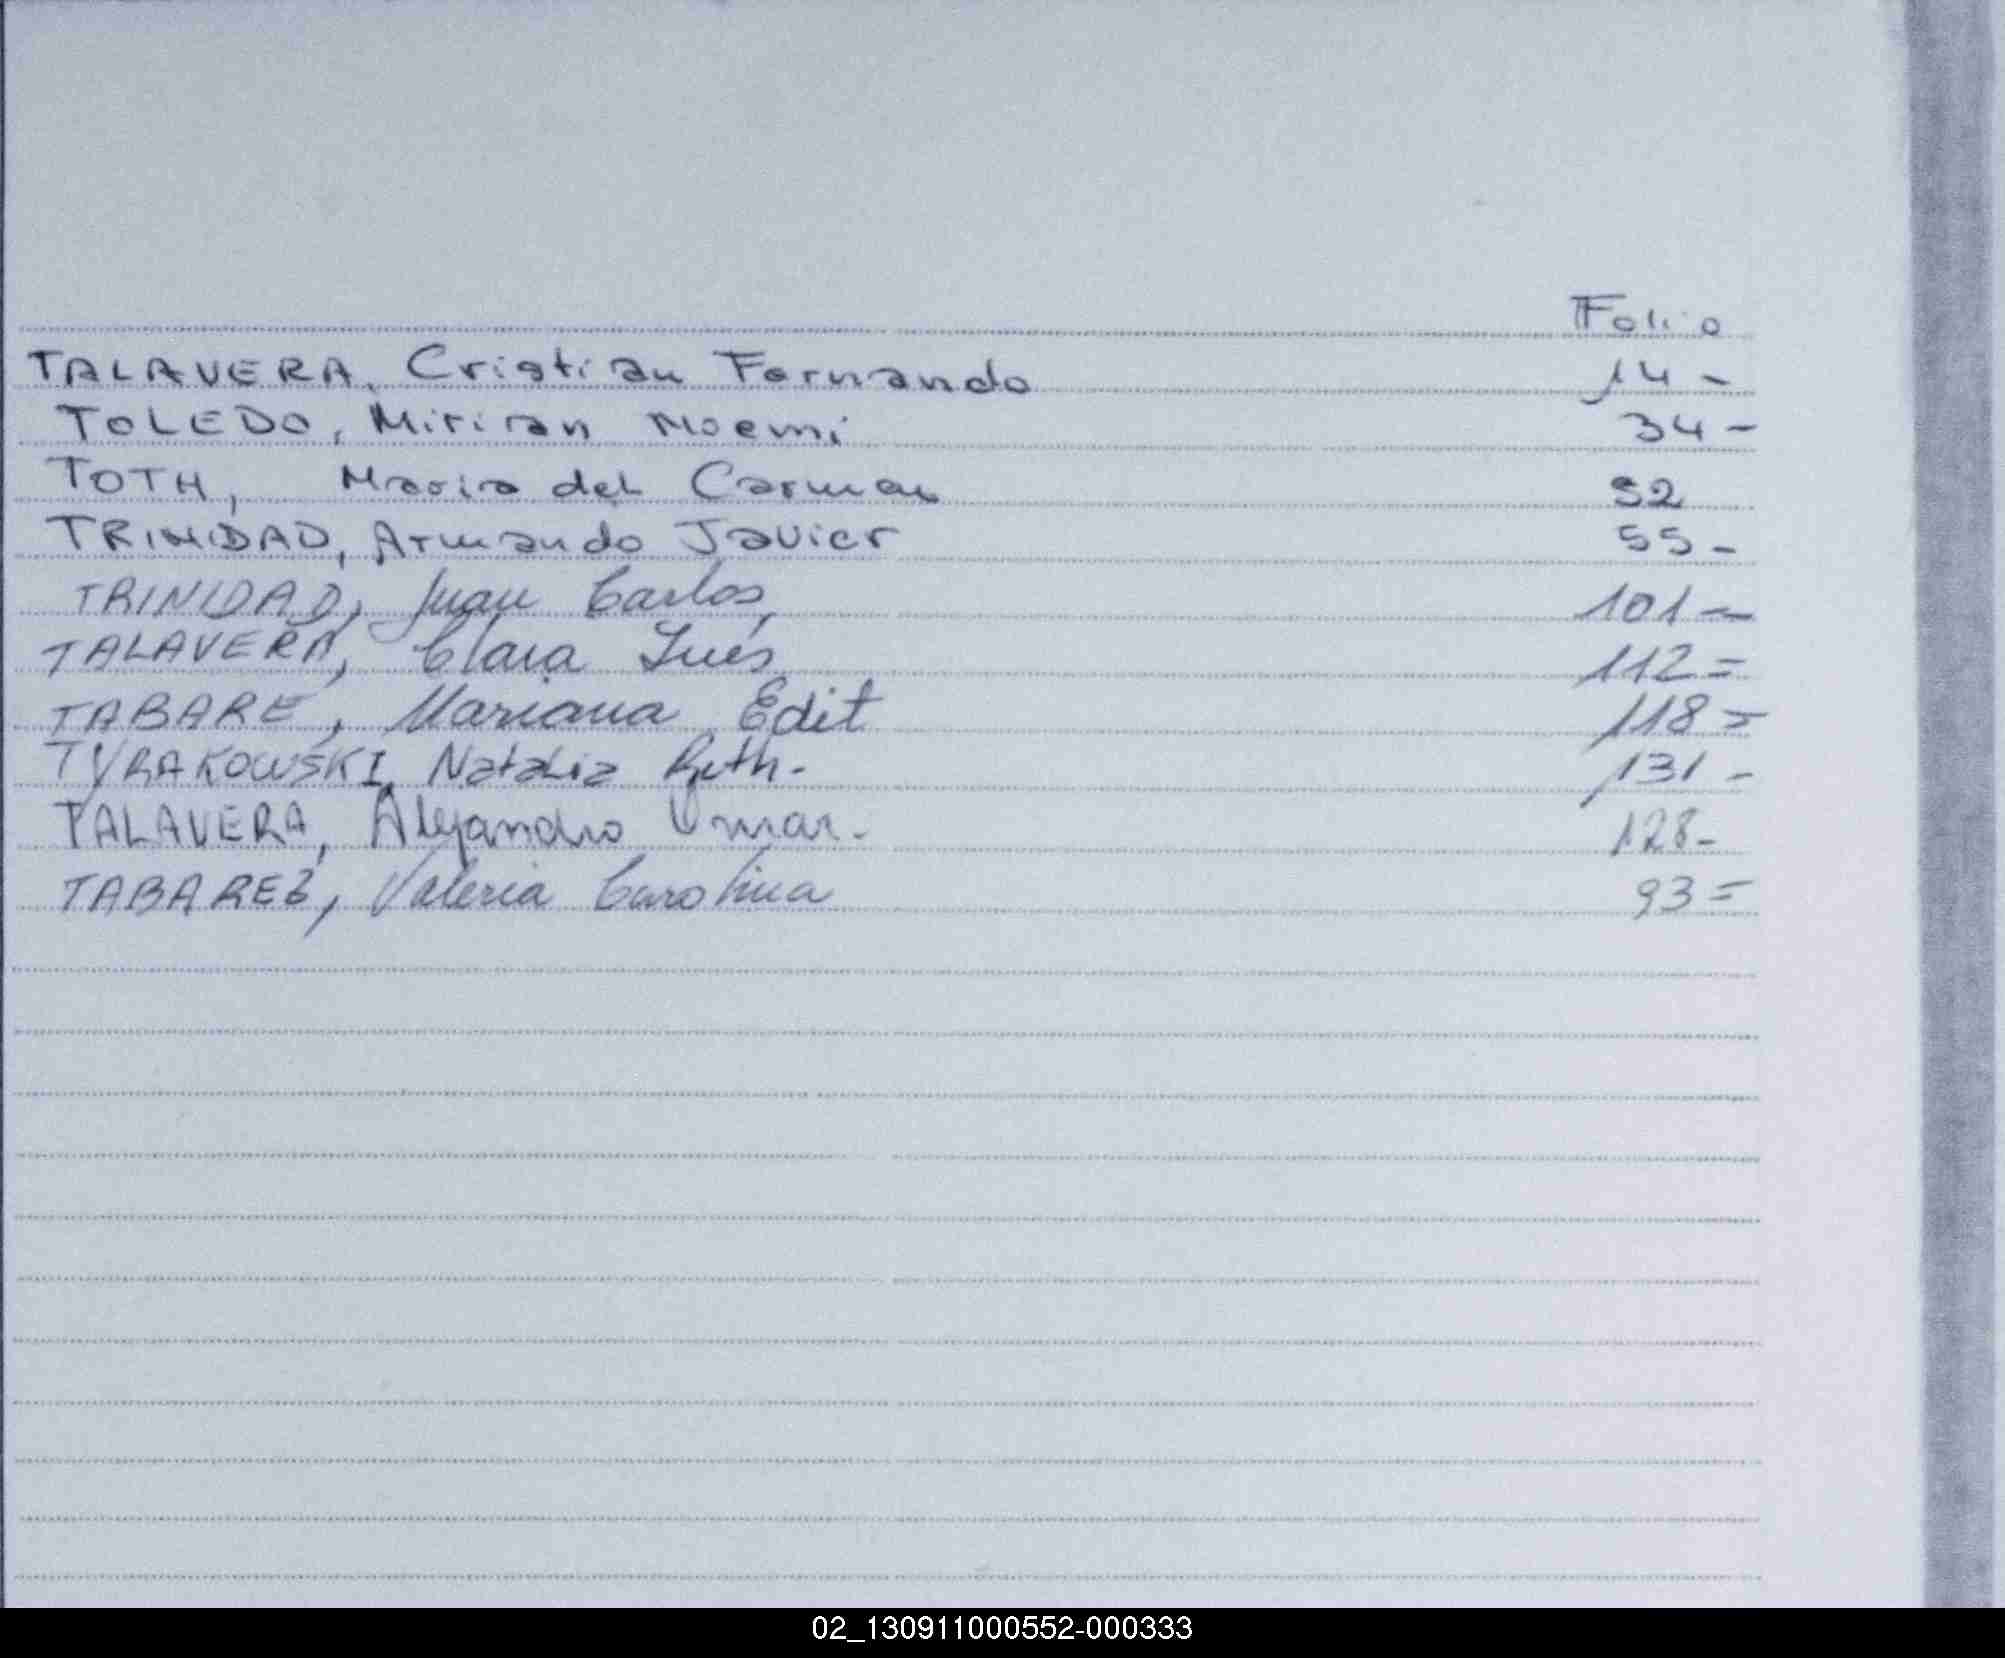 Folio
TALAVERA, Cristian Fernando 14 -
TOLEDO, Mirian Noemi 34 -
TOTH, Maria del Carmen 52
TRINIDAD, Armando Javier 55 -
TRINIDAD, Juan Carlos, 101 -
TALAVERA, Clara Inés 112 =
TABARE, Mariana Edit 118 =
TYRAKOWSKI, Natalia Ruth - 131 -
TALAVERA, Alejandro Omar - 128 -
TABAREZ, Valeria Carolina 93 =
02_130911000552-000333